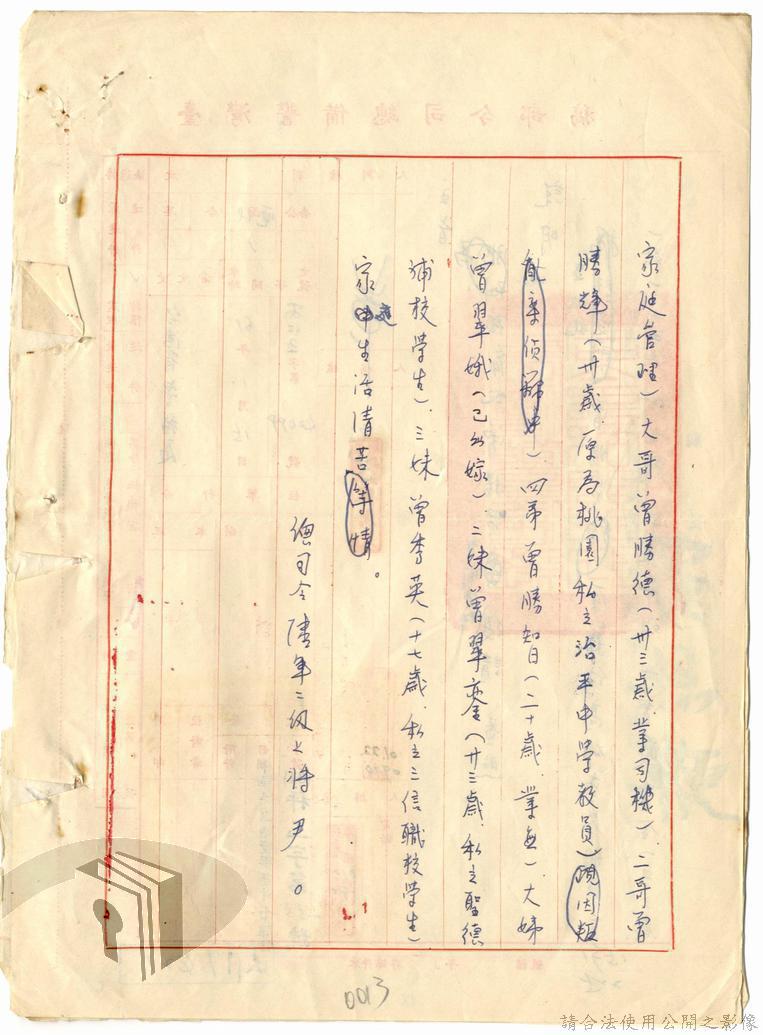 家庭管理）大哥曾勝德（卅三歲，業司機）二哥曾
勝輝（卅歲，原為桃園私立治平中學教員）現因
中）四弟曾勝知（二十歲，業無）大姊
曾翠娥（已出嫁）二妹曾翠鑾（廿三歲，私立聖德
補校學生）三妹曾李英（十七歲，私立三信職校學生）
家庭生活清苦等情。
總司令陸軍二級上將尹。
0013
請合法使用公開之影像